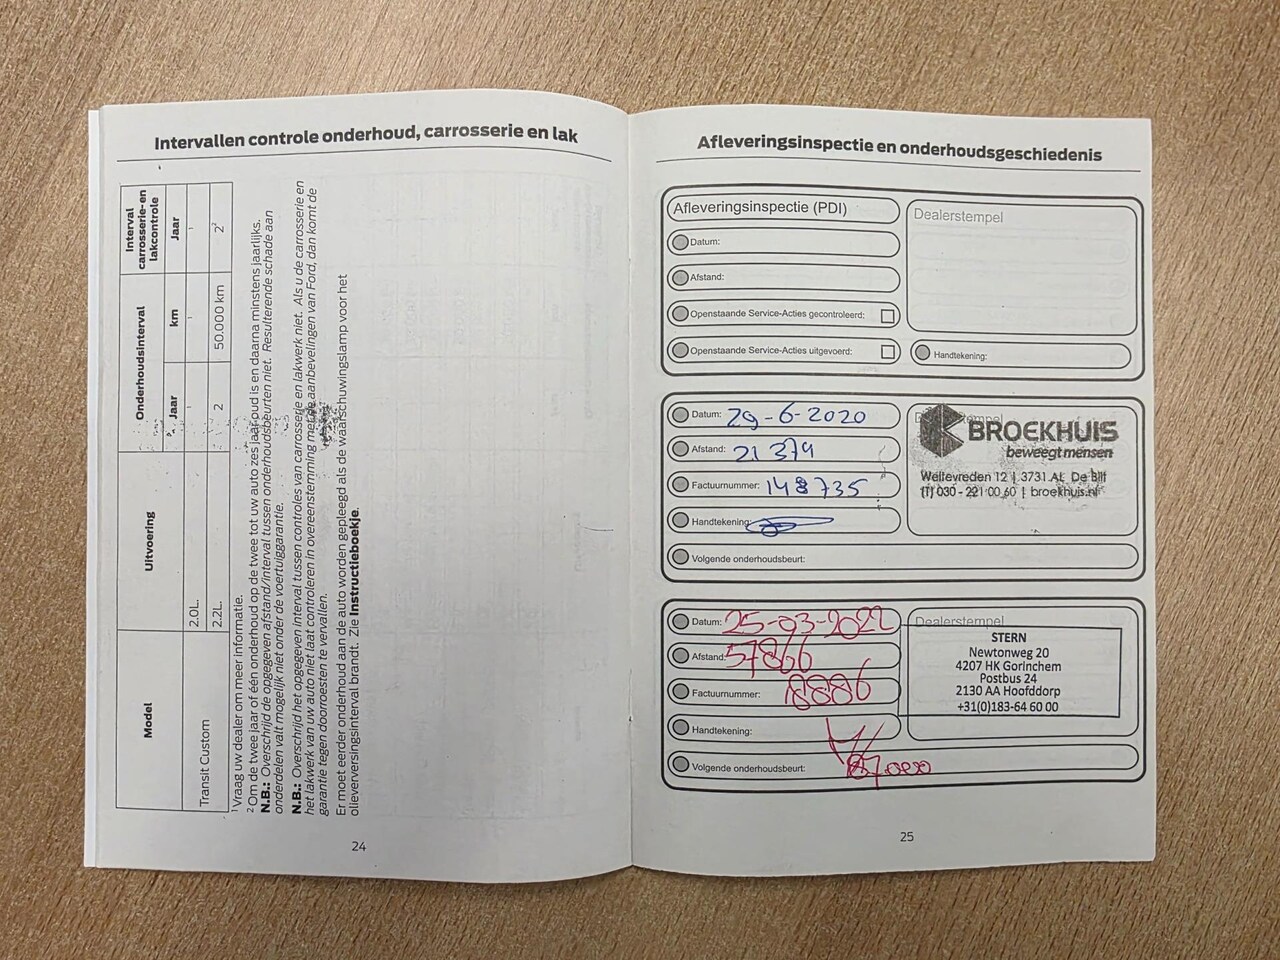 Intervallen controle onderhoud, carrosserie en lak
Model
Uitvoering
Onderhoudsinterval
Interval carrosserie-en lakcontrole
Jaar
km
Jaar
Transit Custom
2.0L.
-¹
-¹
-¹
2.2L.
2
50.000 km
2²
¹ Vraag uw dealer om meer informatie.
² Om de twee jaar of één onderhoud op de twee tot uw auto zes jaar oud is en daarna minstens jaarlijks.
N.B.: Overschrijd de opgegeven afstand/interval tussen onderhoudsbeurten niet. Resulterende schade aan
onderdelen valt mogelijk niet onder de voertuiggarantie.
N.B.: Overschrijd het opgegeven interval tussen controles van carrosserie en lakwerk niet. Als u de carrosserie en
het lakwerk van uw auto niet laat controleren in overeenstemming met de aanbevelingen van Ford, dan komt de
garantie tegen doorroesten te vervallen.
Er moet eerder onderhoud aan de auto worden gepleegd als de waarschuwingslamp voor het
olieverversingsinterval brandt. Zie Instructieboekje.
24
Afleveringsinspectie en onderhoudsgeschiedenis
Afleveringsinspectie (PDI)
Dealerstempel
Datum:
Afstand:
Openstaande Service-Acties gecontroleerd:
Openstaande Service-Acties uitgevoerd:
Handtekening:
Datum: 29-6-2020
Afstand: 21 379
Factuurnummer: 148735
Handtekening:
Volgende onderhoudsbeurt:
Dealerstempel
BROEKHUIS
beweegt mensen
Weltevreden 12 | 3731 AL De Bilt
(T) 030 - 221 00 60 | broekhuis.nl
Datum: 25-03-2022
Afstand: 57866
Factuurnummer: 18886
Handtekening:
Volgende onderhoudsbeurt: 87.000
Dealerstempel
STERN
Newtonweg 20
4207 HK Gorinchem
Postbus 24
2130 AA Hoofddorp
+31(0)183-64 60 00
25